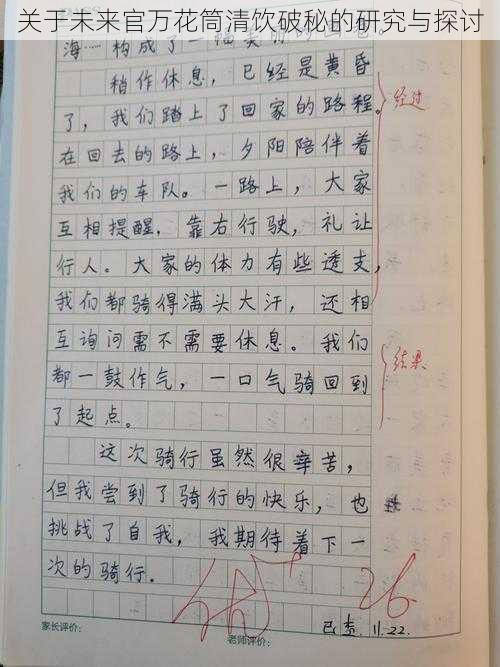 关于未来官万花筒清饮破秘的研究与探讨
海…构成了一幅美丽的
稍作休息，已经是黄昏
了，我们踏上了回家的路程。
经过
在回去的路上，夕阳陪伴着
我们的车队。一路上，大家
互相提醒，靠右行驶，礼让
行人。大家的体力有些透支，
我们都骑得满头大汗，还相
互询问需不需要休息。我们
结果
都一鼓作气，一口气骑回到
了起点。
这次骑行虽然很辛苦，
但我尝到了骑行的快乐，也
挑战了自我，我期待着下一
次的骑行.
26
家长评价：
老师评价：
11.22.